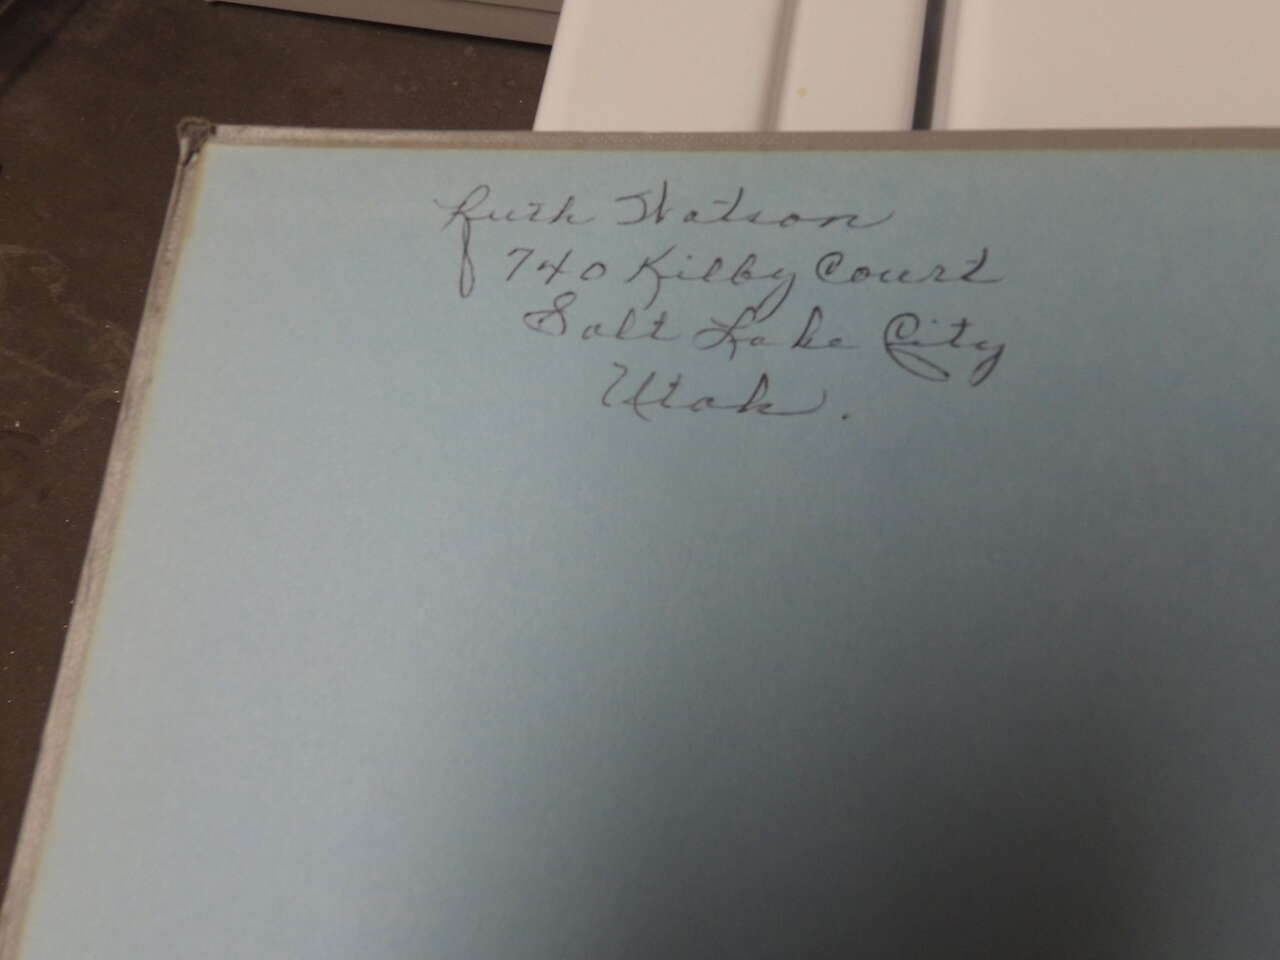 Ruth Watson
740 Kilby Court
Salt Lake City
Utah.